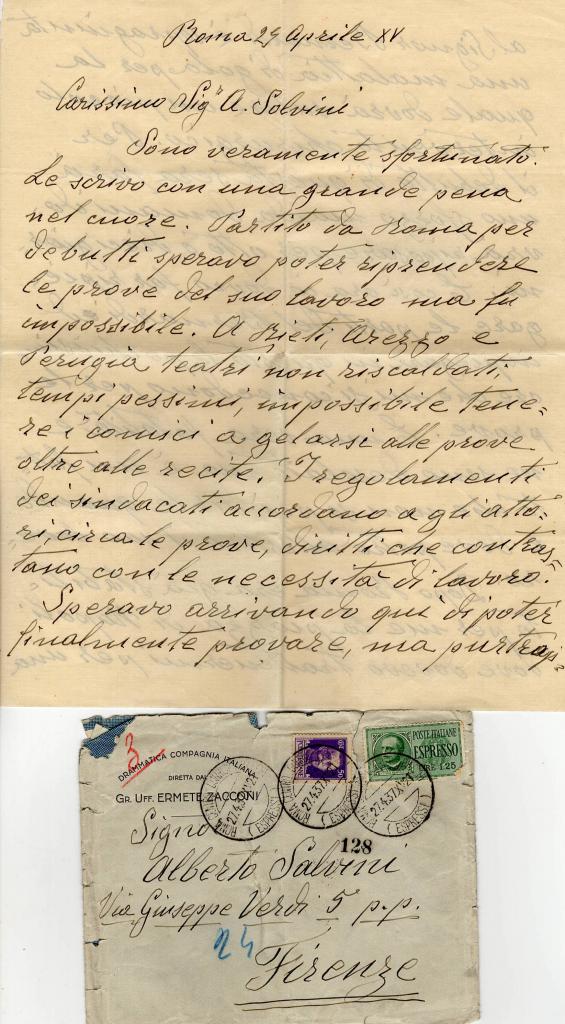 Roma 27 Aprile XV
Carissimo Sigr A. Salvini
Sono veramente sfortunato.
Le scrivo con una grande pena
nel cuore. Partito da Roma per
debutti speravo poter riprendere
le prove del suo lavoro ma fu
impossibile. A Rieti, Arezzo e
Perugia teatri non riscaldati,
tempi pessimi, impossibile tene=
re i comici a gelarsi alle prove
oltre alle recite. I regolamenti
dei sindacati accordano a gli atto=
ri, circa le prove, diritti che contras=
tano con le necessità di lavoro.
Speravo arrivando qui di poter
finalmente provare, ma purtrop=
3
DRAMMATICA COMPAGNIA ITALIANA
DIRETTA DAL
GR. UFF. ERMETE ZACCONI
POSTE ITALIANE
ESPRESSO
LIRE 1.25
50
ROMA
27.4.37.X
(ESPRESSI)
27.4.37.X
(ESPRESSI)
27.4.37.X
(ESPRESSI)
128
Signor
Alberto Salvini
Via Giuseppe Verdi 5 p.p.
24
Firenze